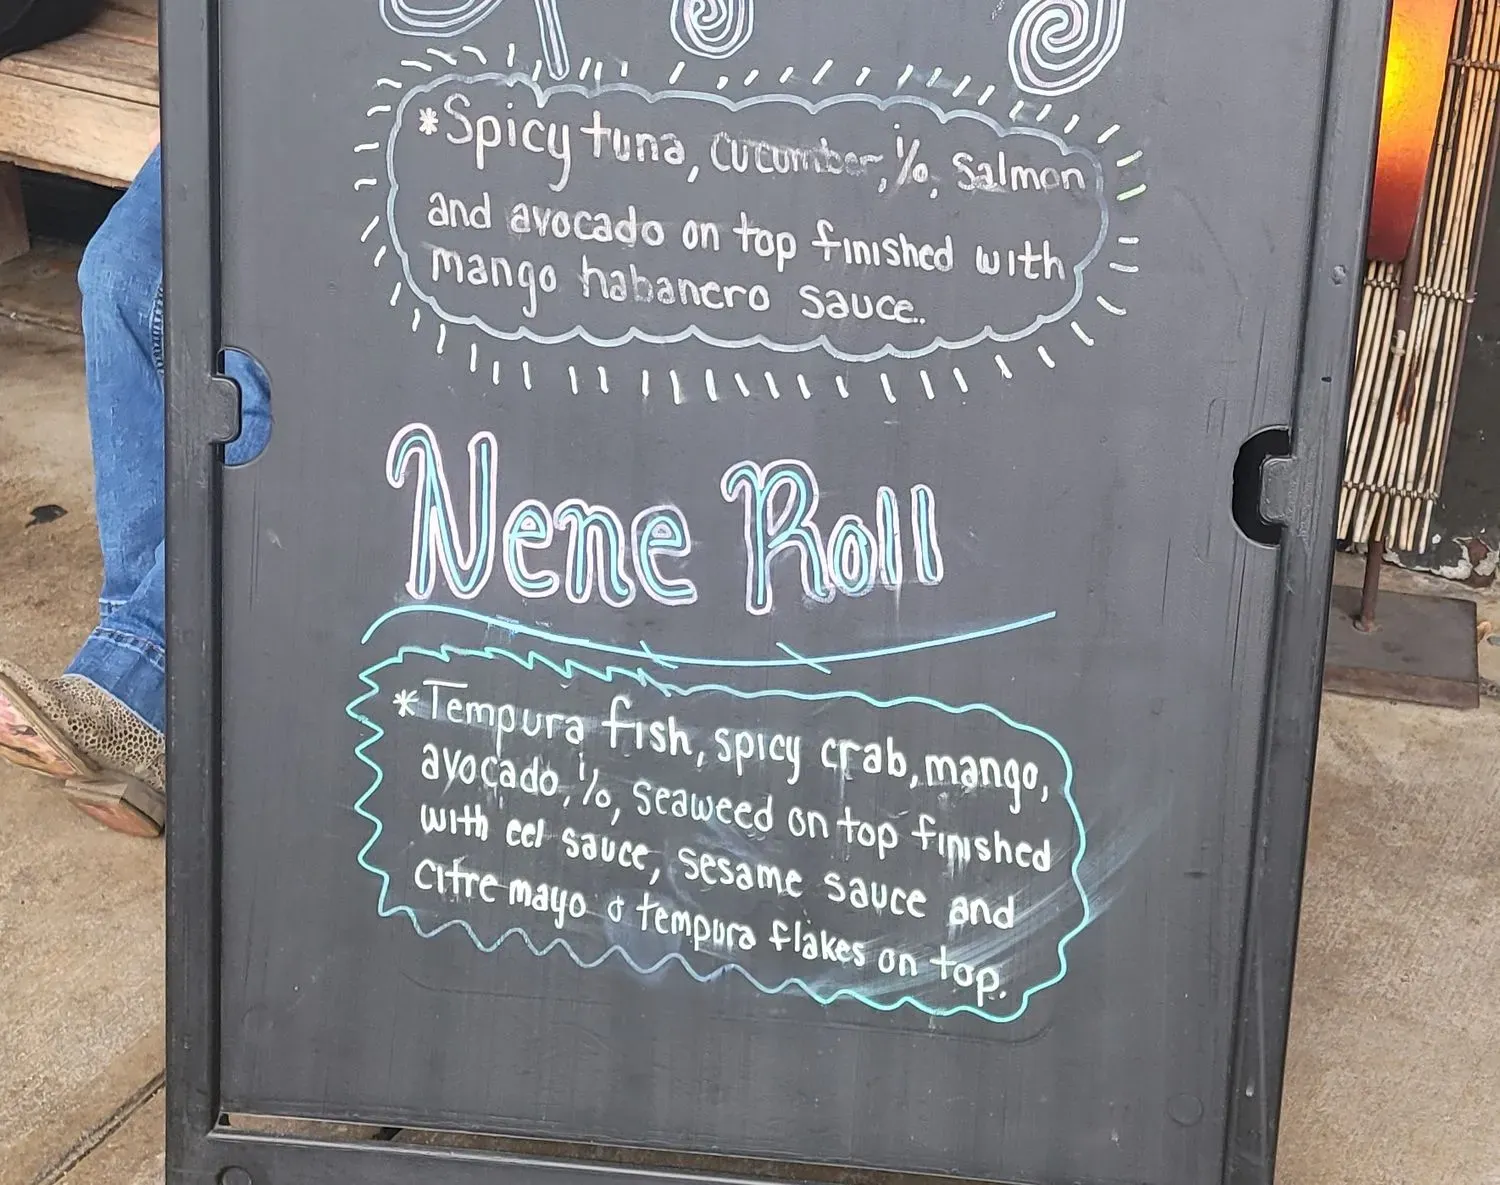 *Spicy tuna, cucumber, i/o, salmon
and avocado on top finished with
mango habanero sauce..
Nene Roll
*Tempura fish, spicy crab, mango,
avocado, i/o, seaweed on top finished
with eel sauce, sesame sauce and
citre mayo & tempura flakes on top.